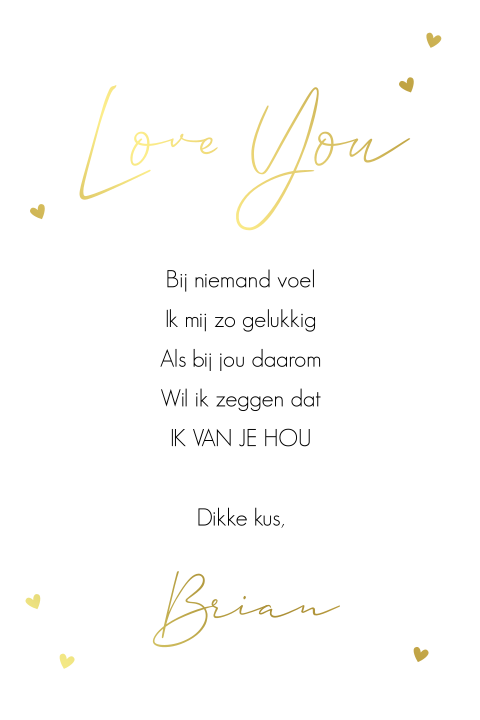 Love You
Bij niemand voel
Ik mij zo gelukkig
Als bij jou daarom
Wil ik zeggen dat
IK VAN JE HOU
Dikke kus,
Brian